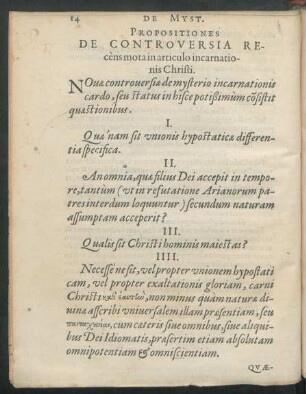 14 DE MYST.
PROPOSITIONES
DE CONTROVERSIA RE-
cèns mota in articulo incarnatio-
nis Christi.
NOuæ controuersiæ de myſterio incarnationis
cardo, ſeu ſtatus in hiſce potiſsimùm cōſiſtit
quæſtionibus.
I.
Quænam ſit vnionis hypoſtaticæ differen-
tia ſpecifica.
II.
An omnia, quæ filius Dei accepit in tempo-
re, tantùm (vt in refutatione Arianorum pa-
tres interdum loquuntur) ſecundum naturam
aſſumptam acceperit?
III.
Qualis ſit Chriſti hominis maieſtas?
IIII.
Neceſſe ne ſit, vel propter vnionem hypoſtati
cam, vel propter exaltationis gloriam, carni
Chriſti non minus quàm naturæ di-
uinæ aſcribi vniuerſalem illam præſentiam, ſeu
cum cæteris ſiue omnibus, ſiue aliqui-
bus Dei Idiomatis, præſertim etiam abſolutam
omnipotentiam & omniſcientiam.
QVÆ-